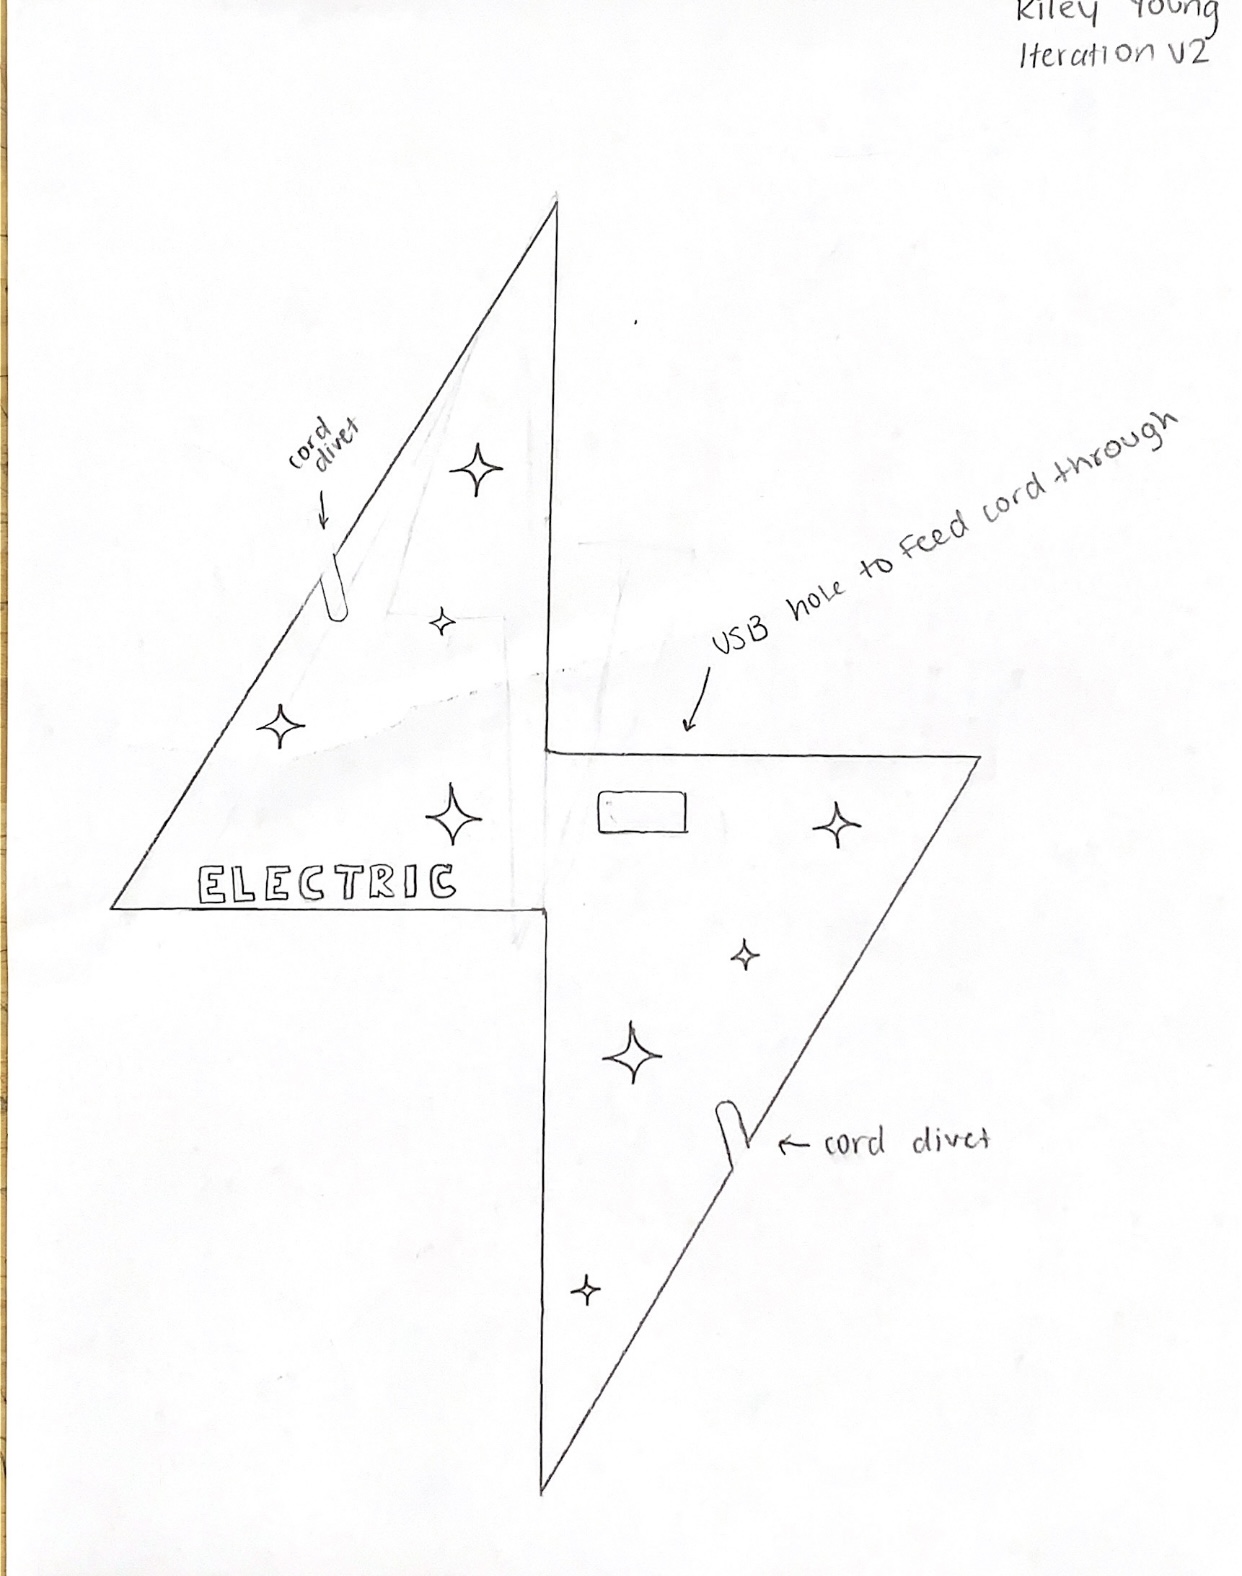 Kiley Young
Iteration V2
cord
divet
USB hole to feed cord through
ELECTRIC
← cord divet